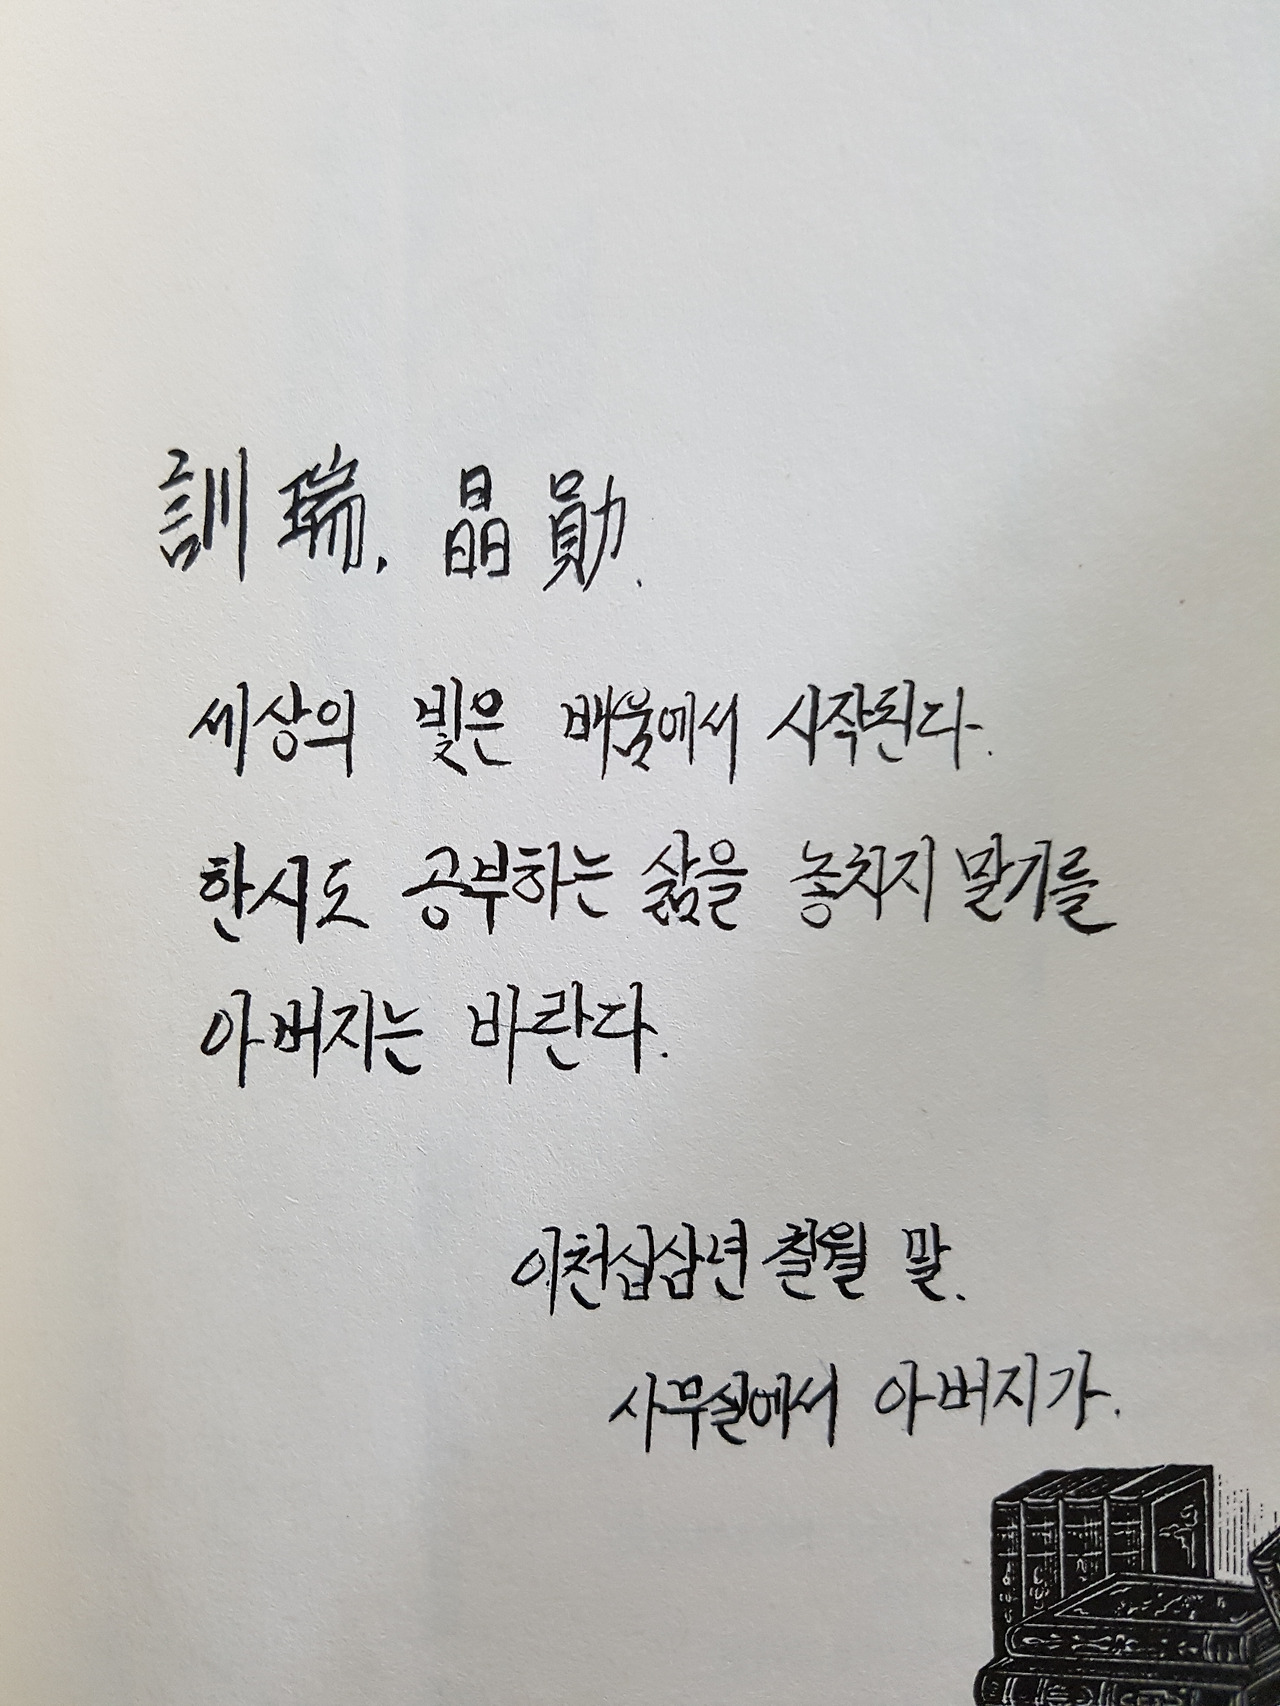 訓瑞, 晶勛.
세상의 빛은 배움에서 시작된다.
한시도 공부하는 삶을 놓치지 말기를
아버지는 바란다.
이천십삼년 칠월 말.
사무실에서 아버지가.